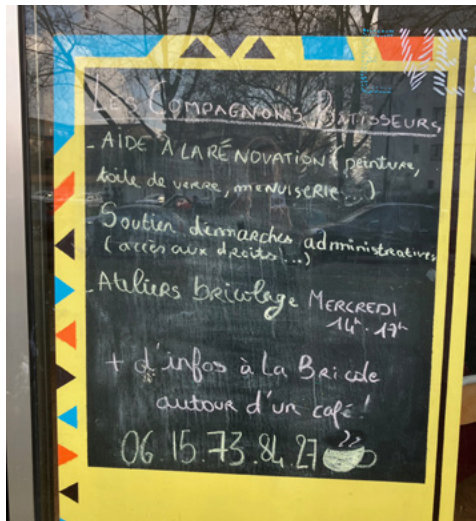 LES COMPAGNONS BÂTISSEURS
- AIDE À LA RÉNOVATION (peinture,
toile de verre, menuiserie...)
- Soutien démarches administratives
(accès aux droits...)
- Ateliers bricolage MERCREDI
14h - 17h
+ d'infos à La Bricole
autour d'un café!
06.15.73.84.27